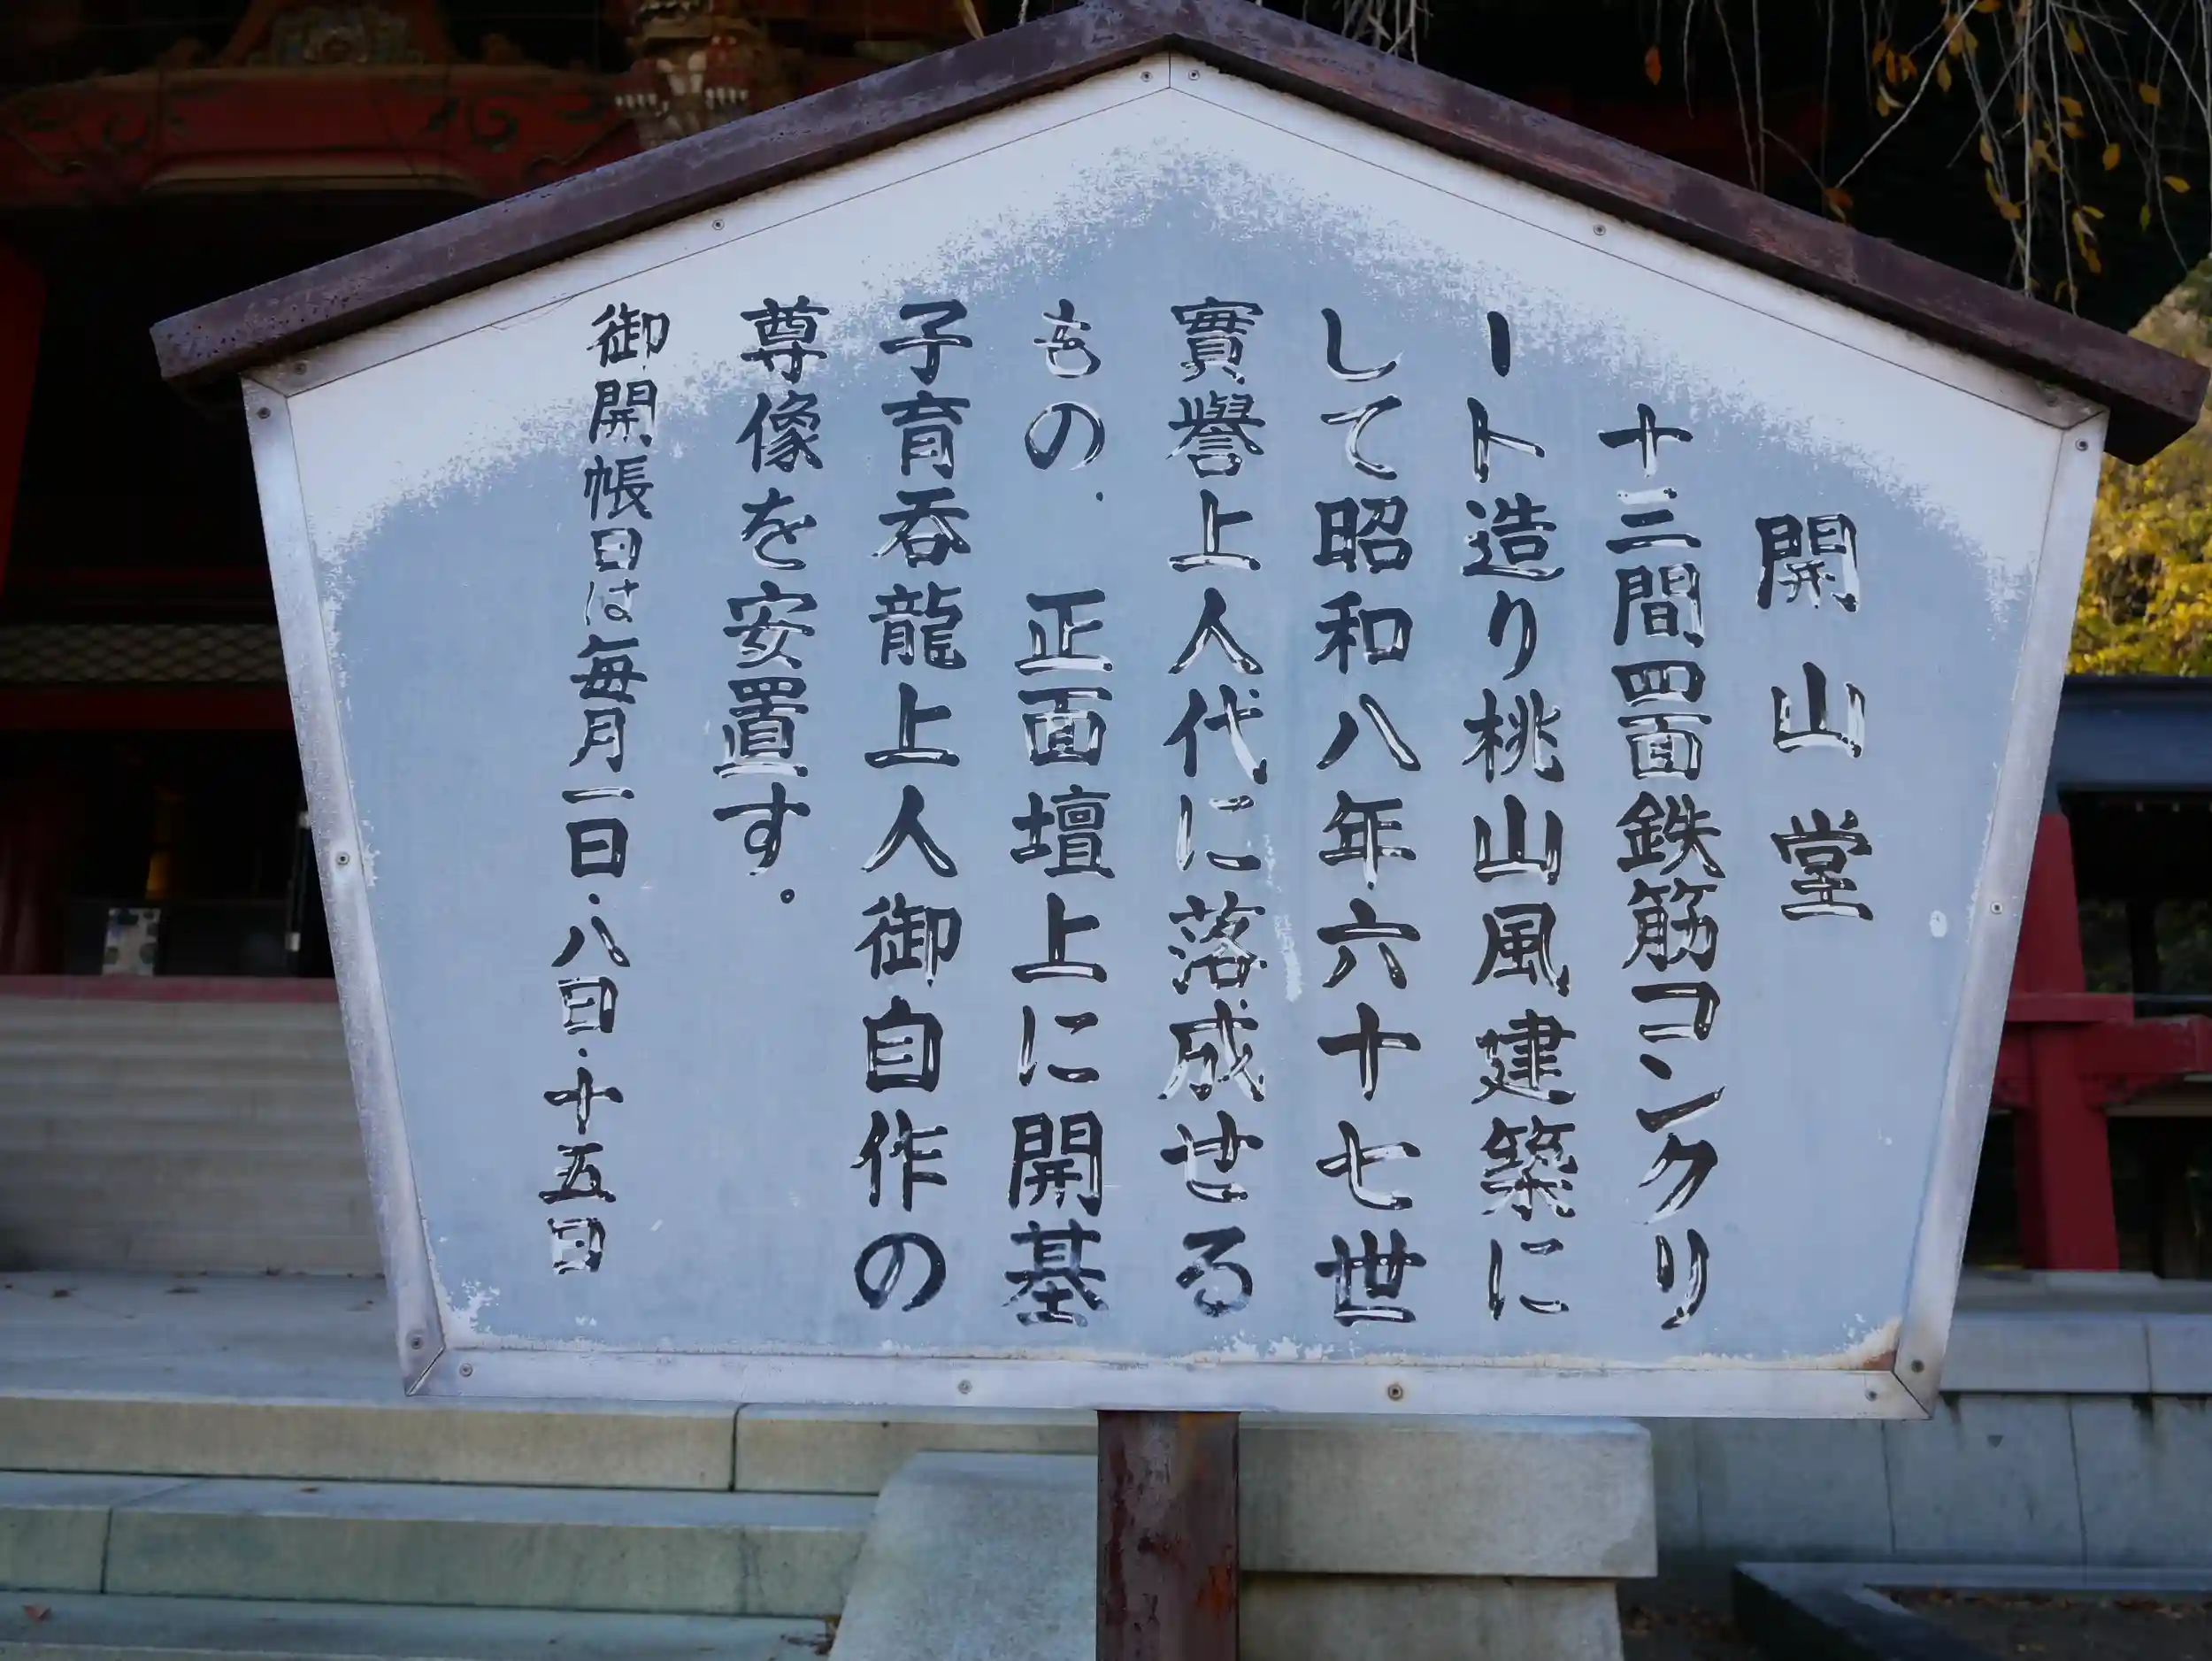 開山堂
十三間四面鉄筋コンクリ
ート造り桃山風建築に
して昭和八年六十七世
實譽上人代に落成せる
もの. 正面壇上に開基
子育呑龍上人御自作の
尊像を安置す.
御開帳日は毎月一日.八日.十五日